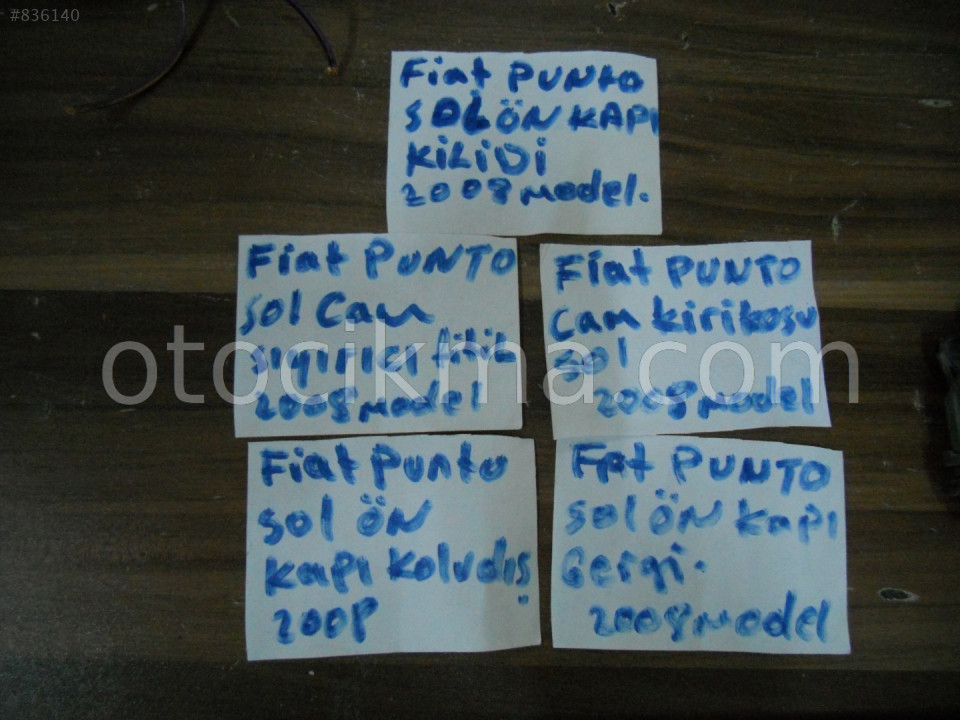 #836140
Fiat PUNTO
SOL ÖN KAPI
KİLİDİ
2008 Model.
Fiat PUNTO
sol Cam
sıyırıcı fitil
2008 Model
Fiat PUNTO
Cam kirikosu
sol
2008 Model
Fiat Punto
sol ÖN
kapı Kolu dış
2008
Fiat PUNTO
sol ÖN kapı
Gergi.
2008 Model
otocikma.com